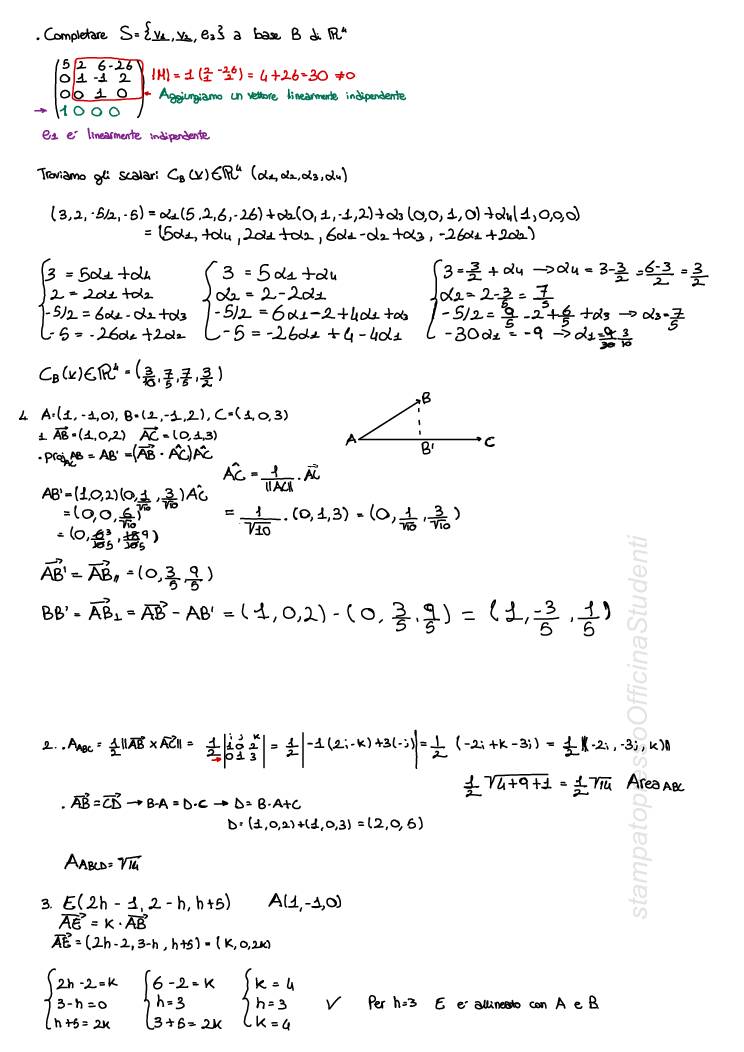 . Completare S={v1, v2, e3} a base B di ℝ⁴
(5 2 6 -26
0 1 -1 2
0 0 1 0
→ 1 0 0 0)
|M| = 1 (2 -26 1 2) = 4+26=30 ≠0
Aggiungiamo un vettore linearmente indipendente
e1 e' linearmente indipendente
Troviamo gli scalari CB(v)∈ℝ⁴ (α1, α2, α3, α4)
(3,2,-5/2,-5) = α1(5,2,6,-26)+α2(0,1,-1,2)+α3(0,0,1,0)+α4(1,0,0,0)
= (5α1,+α4, 2α1+α2, 6α1-α2+α3, -26α1+2α2)
{3 = 5α1+α4 {3 = 5α1+α4 {3=3/2+α4 → α4 = 3-3/2 = 6-3/2 = 3/2
2 = 2α1+α2 α2 = 2-2α1 α2 = 2-3/5 = 7/5
-5/2 = 6α1-α2+α3 -5/2 = 6α1-2+4α1+α3 -5/2 = 9/5 -2+6/5+α3 → α3=7/5
-5 = -26α1+2α2 -5 = -26α1+4-4α1 -30α1 = -9 → α1=9/30 3/10
CB(v)∈ℝ⁴ = (3/10, 7/5, 7/5, 3/2)
4. A=(1,-1,0), B=(2,-1,2), C=(1,0,3)
1. AB=(1,0,2) AC=(0,1,3)
. projAC AB = AB' = (AB · ÂC)ÂC
A B B' C
ÂC = 1/||AC|| · AC
= 1/√10 · (0,1,3) = (0, 1/√10, 3/√10)
AB' = (1,0,2)(0, 1/√10, 3/√10)ÂC
= (0,0,6/√10)
= (0, 6 3/10 5, 18 9/10 5)
AB' = AB// = (0, 3/5, 9/5)
BB' = AB⊥ = AB - AB' = (1,0,2)-(0, 3/5, 9/5) = (1, -3/5, 1/5)
2. . AABC = 1/2 ||AB × AC|| = 1/2 |i j k 1 0 2 0 1 3| = 1/2 |-1(2i-k)+3(-j)| = 1/2 (-2i+k-3j) = 1/2 ||(-2i,-3j,k)||
1/2 √4+9+1 = 1/2 √14 Area ABC
. AB=CD → B-A = D-C → D = B-A+C
D = (1,0,2)+(1,0,3) = (2,0,5)
AABCD = √14
3. E(2h-1, 2-h, h+5) A(1,-1,0)
AE = K · AB
AE = (2h-2, 3-h, h+5) = (K, 0, 2K)
{2h-2=K {6-2=K {K=4
3-h=0 h=3 h=3 ✓ Per h=3 E e' allineato con A e B
h+5=2K 3+5=2K K=4
stampatopressoOfficinaStudenti